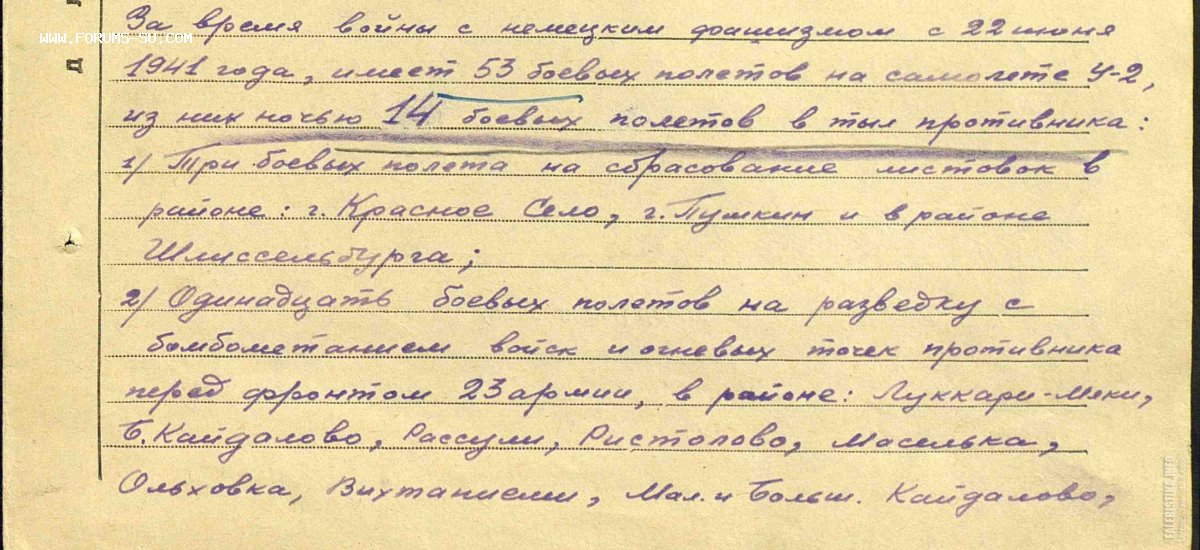 За время войны с немецким фашизмом с 22 июня
WWW.FORUMS-SU.COM
1941 года, имеет 53 боевых полетов на самолете У-2,
из них ночью 14 боевых полетов в тыл противника:
1/ Три боевых полета на сбрасование листовок в
районе: г. Красное Село, г. Пушкин и в районе
Шлиссельбурга;
2/ Одинадцать боевых полетов на разведку с
бомбометанием войск и огневых точек противника
перед фронтом 23 армии, в районе: Луккари-Мяки,
Б. Кайдалово, Рассули, Ристолово, Маселька,
Ольховка, Вихтаниеми, Мал. и Больш. Кайдалово,
FALERISTIKA.INFO